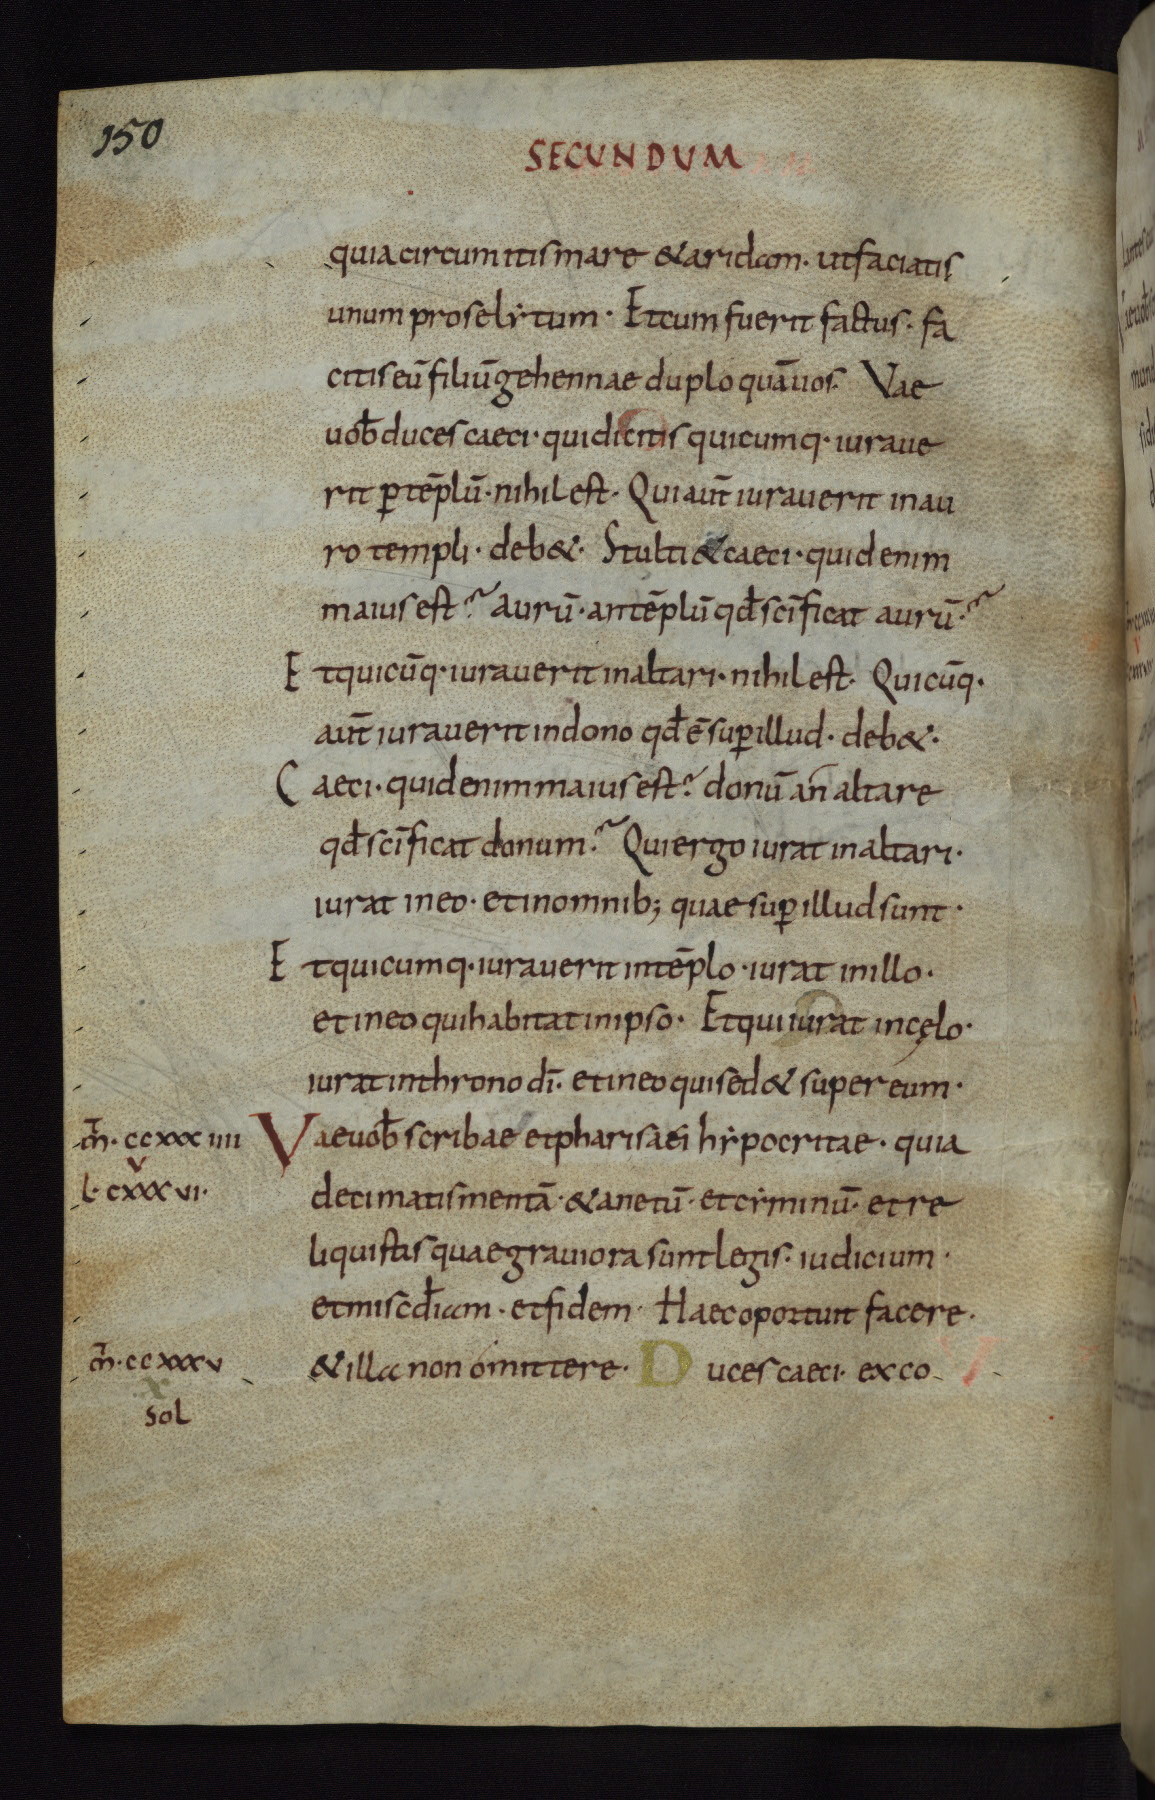 150
SECUNDUM
quia circumitis mare & aridam · ut faciatis
unum proselẏtum · Et cum fuerit factus · fa
citis eū filiū gehennae duplo quā uos · Vae
uob̄ duces caeci · qui dicitis quicumq· iuraue
rit ꝑ tēplū · nihil est · Qui aut̄ iurauerit in au
ro templi · deb& · Stulti & caeci · quid enim
maius est? aurū · an tēplū qd̄ sc̄ificat aurū?
Et quicūq· iurauerit in altari · nihil est · Quicūq·
aut̄ iurauerit in dono qd̄ ē suꝑ illud · deb& ·
Caeci · quid enim maius est? donū an altare
qd̄ sc̄ificat donum? Qui ergo iurat in altari ·
iurat in eo · et in omnib; quae suꝑ illud sunt ·
Et quicumq· iurauerit in tēplo · iurat in illo ·
et in eo qui habitat in ipso · Et qui iurat in cęlo ·
iurat in throno dī · et in eo qui sed& super eum ·
m̄ · ccxxxiiii Vae uob̄ scribae et pharisaei hẏpocritae · quia
v
l · cxxxvi · decimatis mentā · & anetū · et cẏminū · et re
liquistis quae grauiora sunt legis · iudicium ·
et misc̄d̄iam · et fidem · Haec oportuit facere ·
m̄ · ccxxxv & illa non omittere · Duces caeci · exco
x
sol